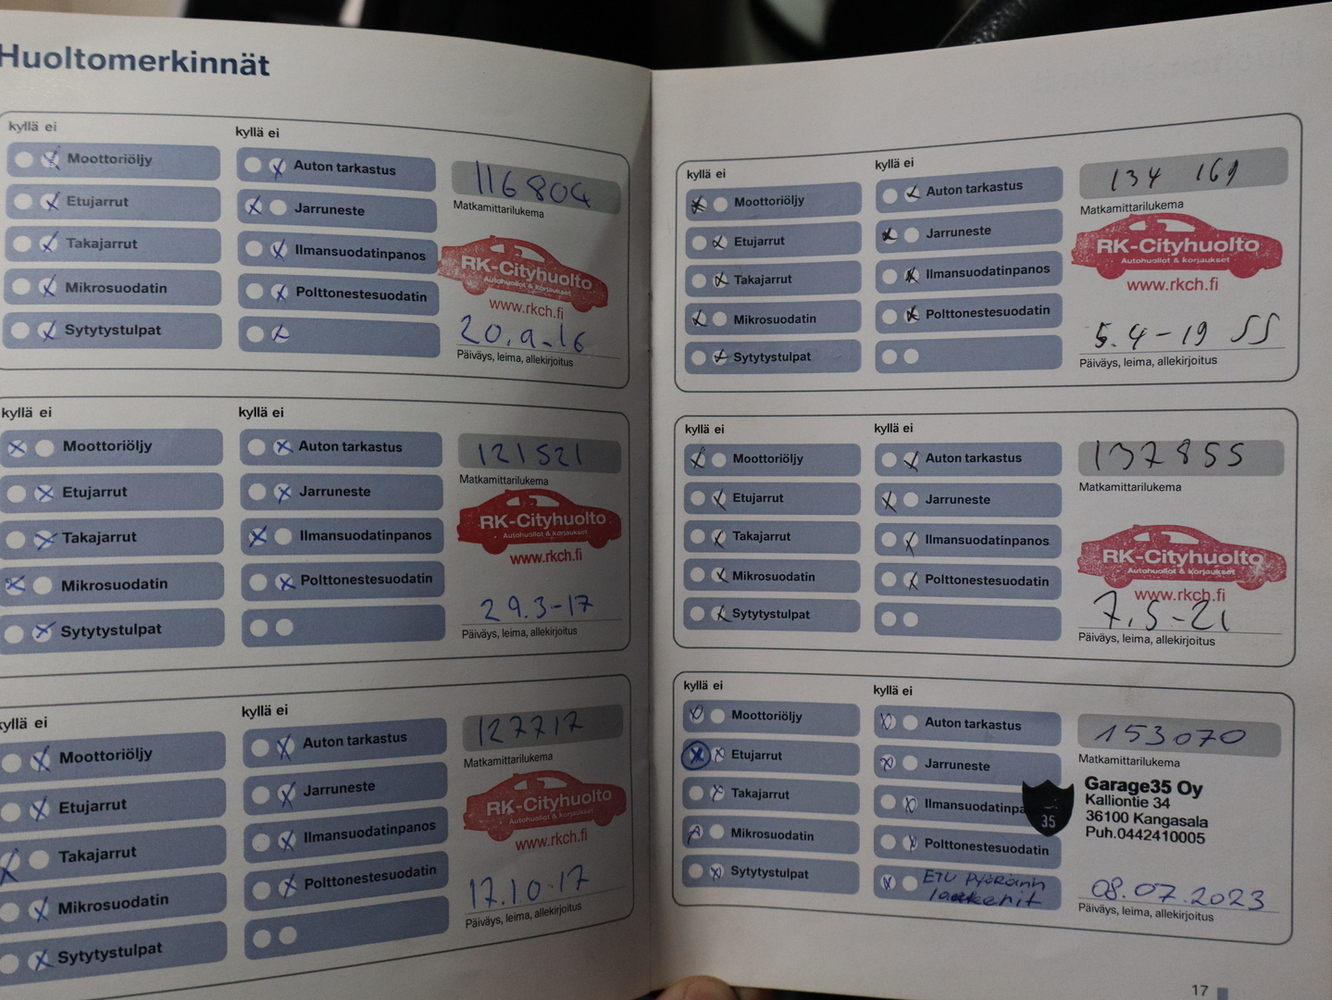 Huoltomerkinnät
kyllä ei
Moottoriöljy
Etujarrut
Takajarrut
Mikrosuodatin
Sytytystulpat
kyllä ei
Auton tarkastus
Jarruneste
Ilmansuodatinpanos
Polttonestesuodatin
116804
Matkamittarilukema
RK-Cityhuolto
Autohuollot & korjaukset
www.rkch.fi
20.9-16
Päiväys, leima, allekirjoitus
kyllä ei
Moottoriöljy
Etujarrut
Takajarrut
Mikrosuodatin
Sytytystulpat
kyllä ei
Auton tarkastus
Jarruneste
Ilmansuodatinpanos
Polttonestesuodatin
121521
Matkamittarilukema
RK-Cityhuolto
Autohuollot & korjaukset
www.rkch.fi
29.3-17
Päiväys, leima, allekirjoitus
kyllä ei
Moottoriöljy
Etujarrut
Takajarrut
Mikrosuodatin
Sytytystulpat
kyllä ei
Auton tarkastus
Jarruneste
Ilmansuodatinpanos
Polttonestesuodatin
127717
Matkamittarilukema
RK-Cityhuolto
Autohuollot & korjaukset
www.rkch.fi
17.10-17
Päiväys, leima, allekirjoitus
kyllä ei
Moottoriöljy
Etujarrut
Takajarrut
Mikrosuodatin
Sytytystulpat
kyllä ei
Auton tarkastus
Jarruneste
Ilmansuodatinpanos
Polttonestesuodatin
134 169
Matkamittarilukema
RK-Cityhuolto
Autohuollot & korjaukset
www.rkch.fi
5.4-19 SS
Päiväys, leima, allekirjoitus
kyllä ei
Moottoriöljy
Etujarrut
Takajarrut
Mikrosuodatin
Sytytystulpat
kyllä ei
Auton tarkastus
Jarruneste
Ilmansuodatinpanos
Polttonestesuodatin
137855
Matkamittarilukema
RK-Cityhuolto
Autohuollot & korjaukset
www.rkch.fi
7.5-21
Päiväys, leima, allekirjoitus
kyllä ei
Moottoriöljy
Etujarrut
Takajarrut
Mikrosuodatin
Sytytystulpat
kyllä ei
Auton tarkastus
Jarruneste
Ilmansuodatinpa
Polttonestesuodatin
ETU pyöränn
laakerit
153070
Matkamittarilukema
35
Garage35 Oy
Kalliontie 34
36100 Kangasala
Puh.0442410005
08.07.2023
Päiväys, leima, allekirjoitus
17